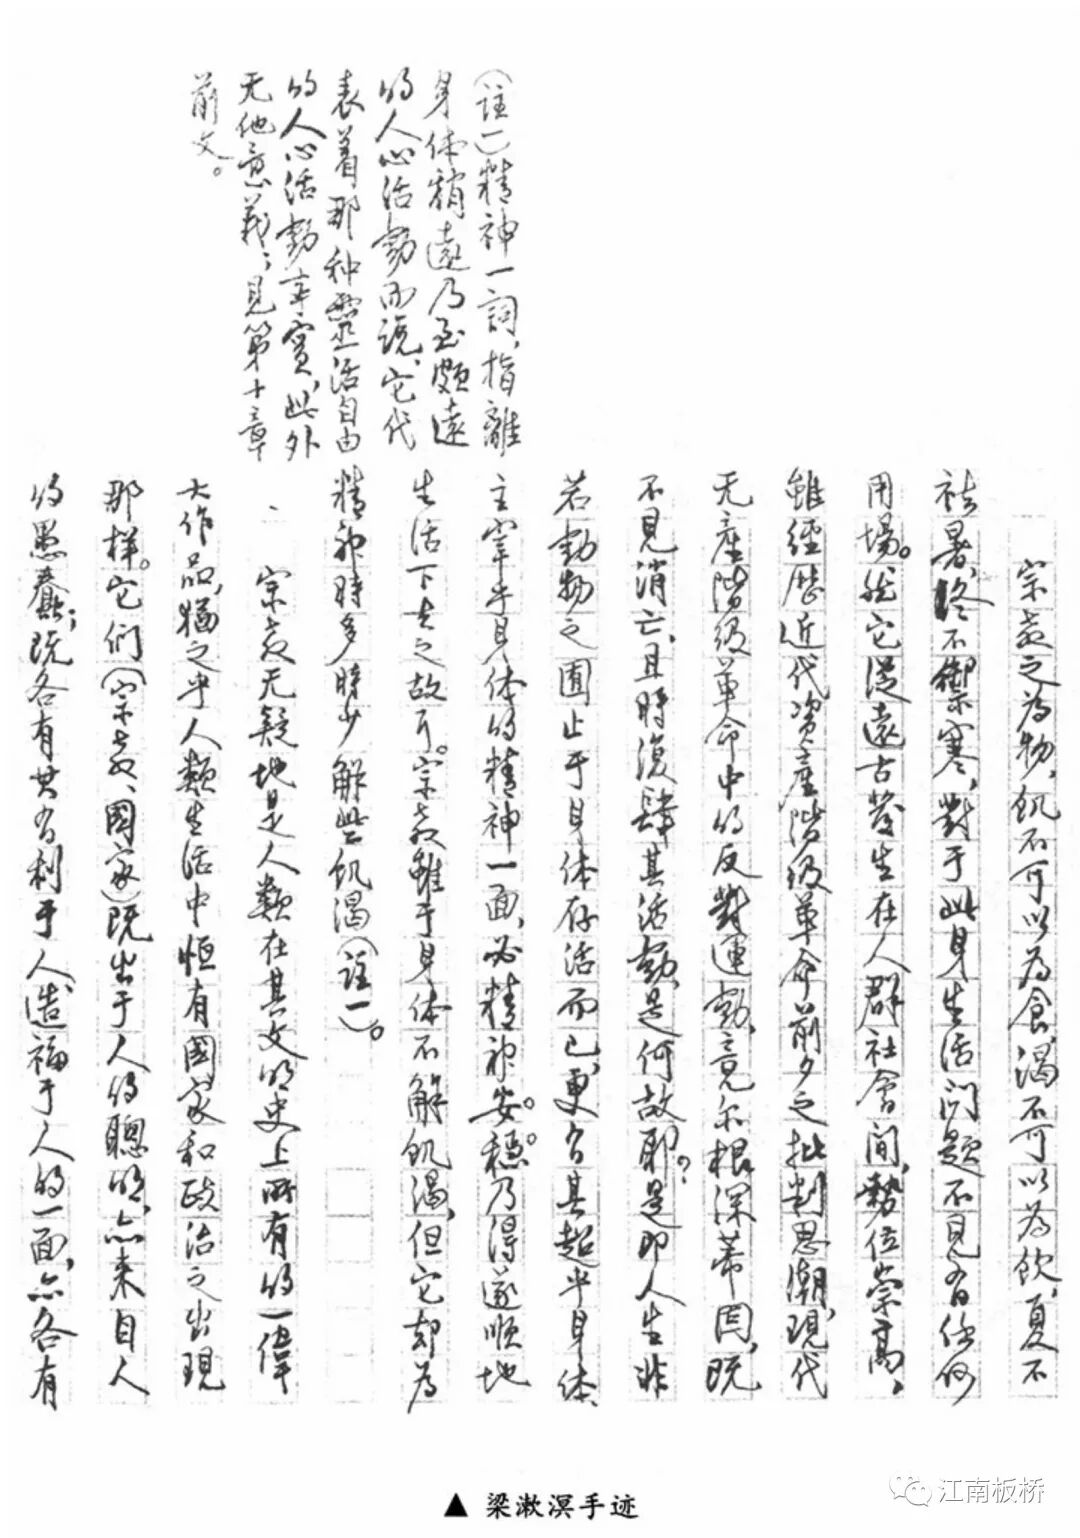 宗教之为物，饥不可以为食，渴不可以为饮，夏不
祛暑，冬不御寒，對于此身生活问题不见有任何
用場。然它從遠古發生在人群社會間，勢位崇高，
雖經歷近代资產階级革命前夕之批判思潮，现代
无產階级革命中的反對運動，竟尔根深蒂固，既
不见消亡，且時復肆其活動，是何故耶？是即人生非
若動物之囿止于身体存活而已，更有其超乎身体、
主宰乎身体的精神一面，必精神安。穩。乃得遂顺地
生活下去之故耳。宗教雖于身体不解饥渴，但它却为
精神時多時少解些饥渴（註一）。
宗教无疑地是人類在其文明史上所有的一偉
大作品，猶之乎人類生活中恒有國家和政治之出现
那様。它们（宗教、國家）既出于人的聰明，亦来自人
的愚蠢；既各有其有利于人（造福于人的一面，亦各有
（註一）精神一詞，指離
身体稍遠乃至颇遠
的人心活動而説，它代
表着那种靈活自由
的人心活動事實，此外
无他意義；见第十章
前文。
▲ 梁漱溟手迹
江南板桥